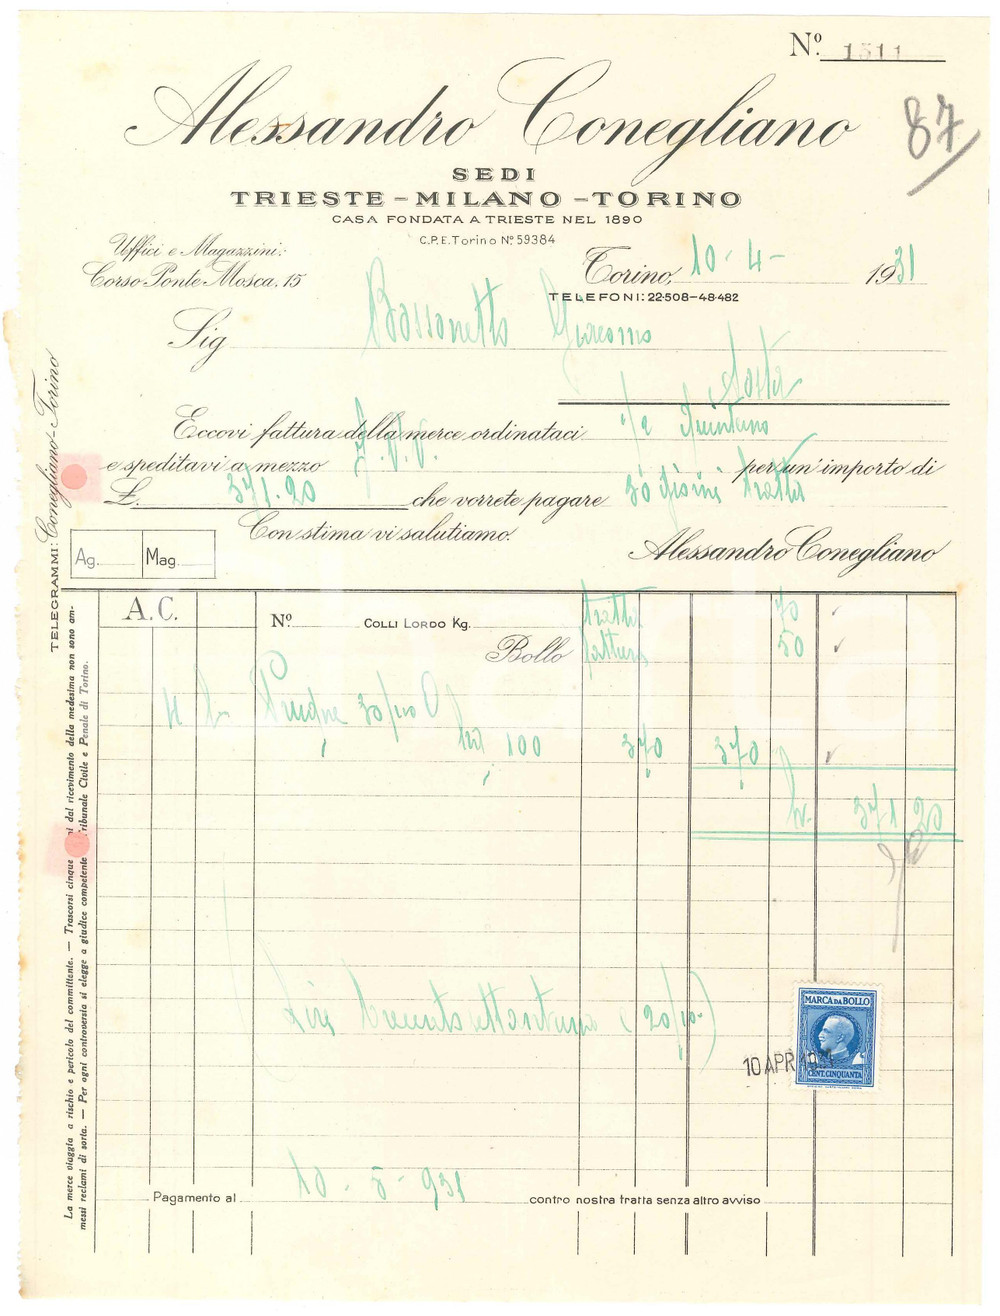 Nº 1311
87
Alessandro Conegliano
SEDI
TRIESTE - MILANO - TORINO
CASA FONDATA A TRIESTE NEL 1890
C.P.E. Torino Nº 59384
Uffici e Magazzini:
Corso Ponte Mosca, 15
Torino, 10 - 4 - 1931
TELEFONI: 22-508-48-482
Sig Giacomo
Aosta
Eccovi fattura della merce ordinataci
e speditavi a mezzo per un' importo di
£. 371.20 che vorrete pagare 30 tratta
Con stima vi salutiamo.
Alessandro Conegliano
Ag. Mag.
TELEGRAMMI: Conegliano-Torino
La merce viaggia a rischio e pericolo del committente. — Trascorsi cinque dal ricevimento della medesima non sono am-
messi reclami di sorta. — Per ogni controversia si elegge a giudice competente Tribunale Civile e Penale di Torino.
A.C. Nº COLLI LORDO Kg. tratta 70
Bollo fattura 50
Prugne 30/
100 370 370
371 20
Lire trecentosettantuna (20/
MARCA DA BOLLO
CENT. CINQUANTA
10 APR 1931
Pagamento al 10 - 5 - 931 contro nostra tratta senza altro avviso